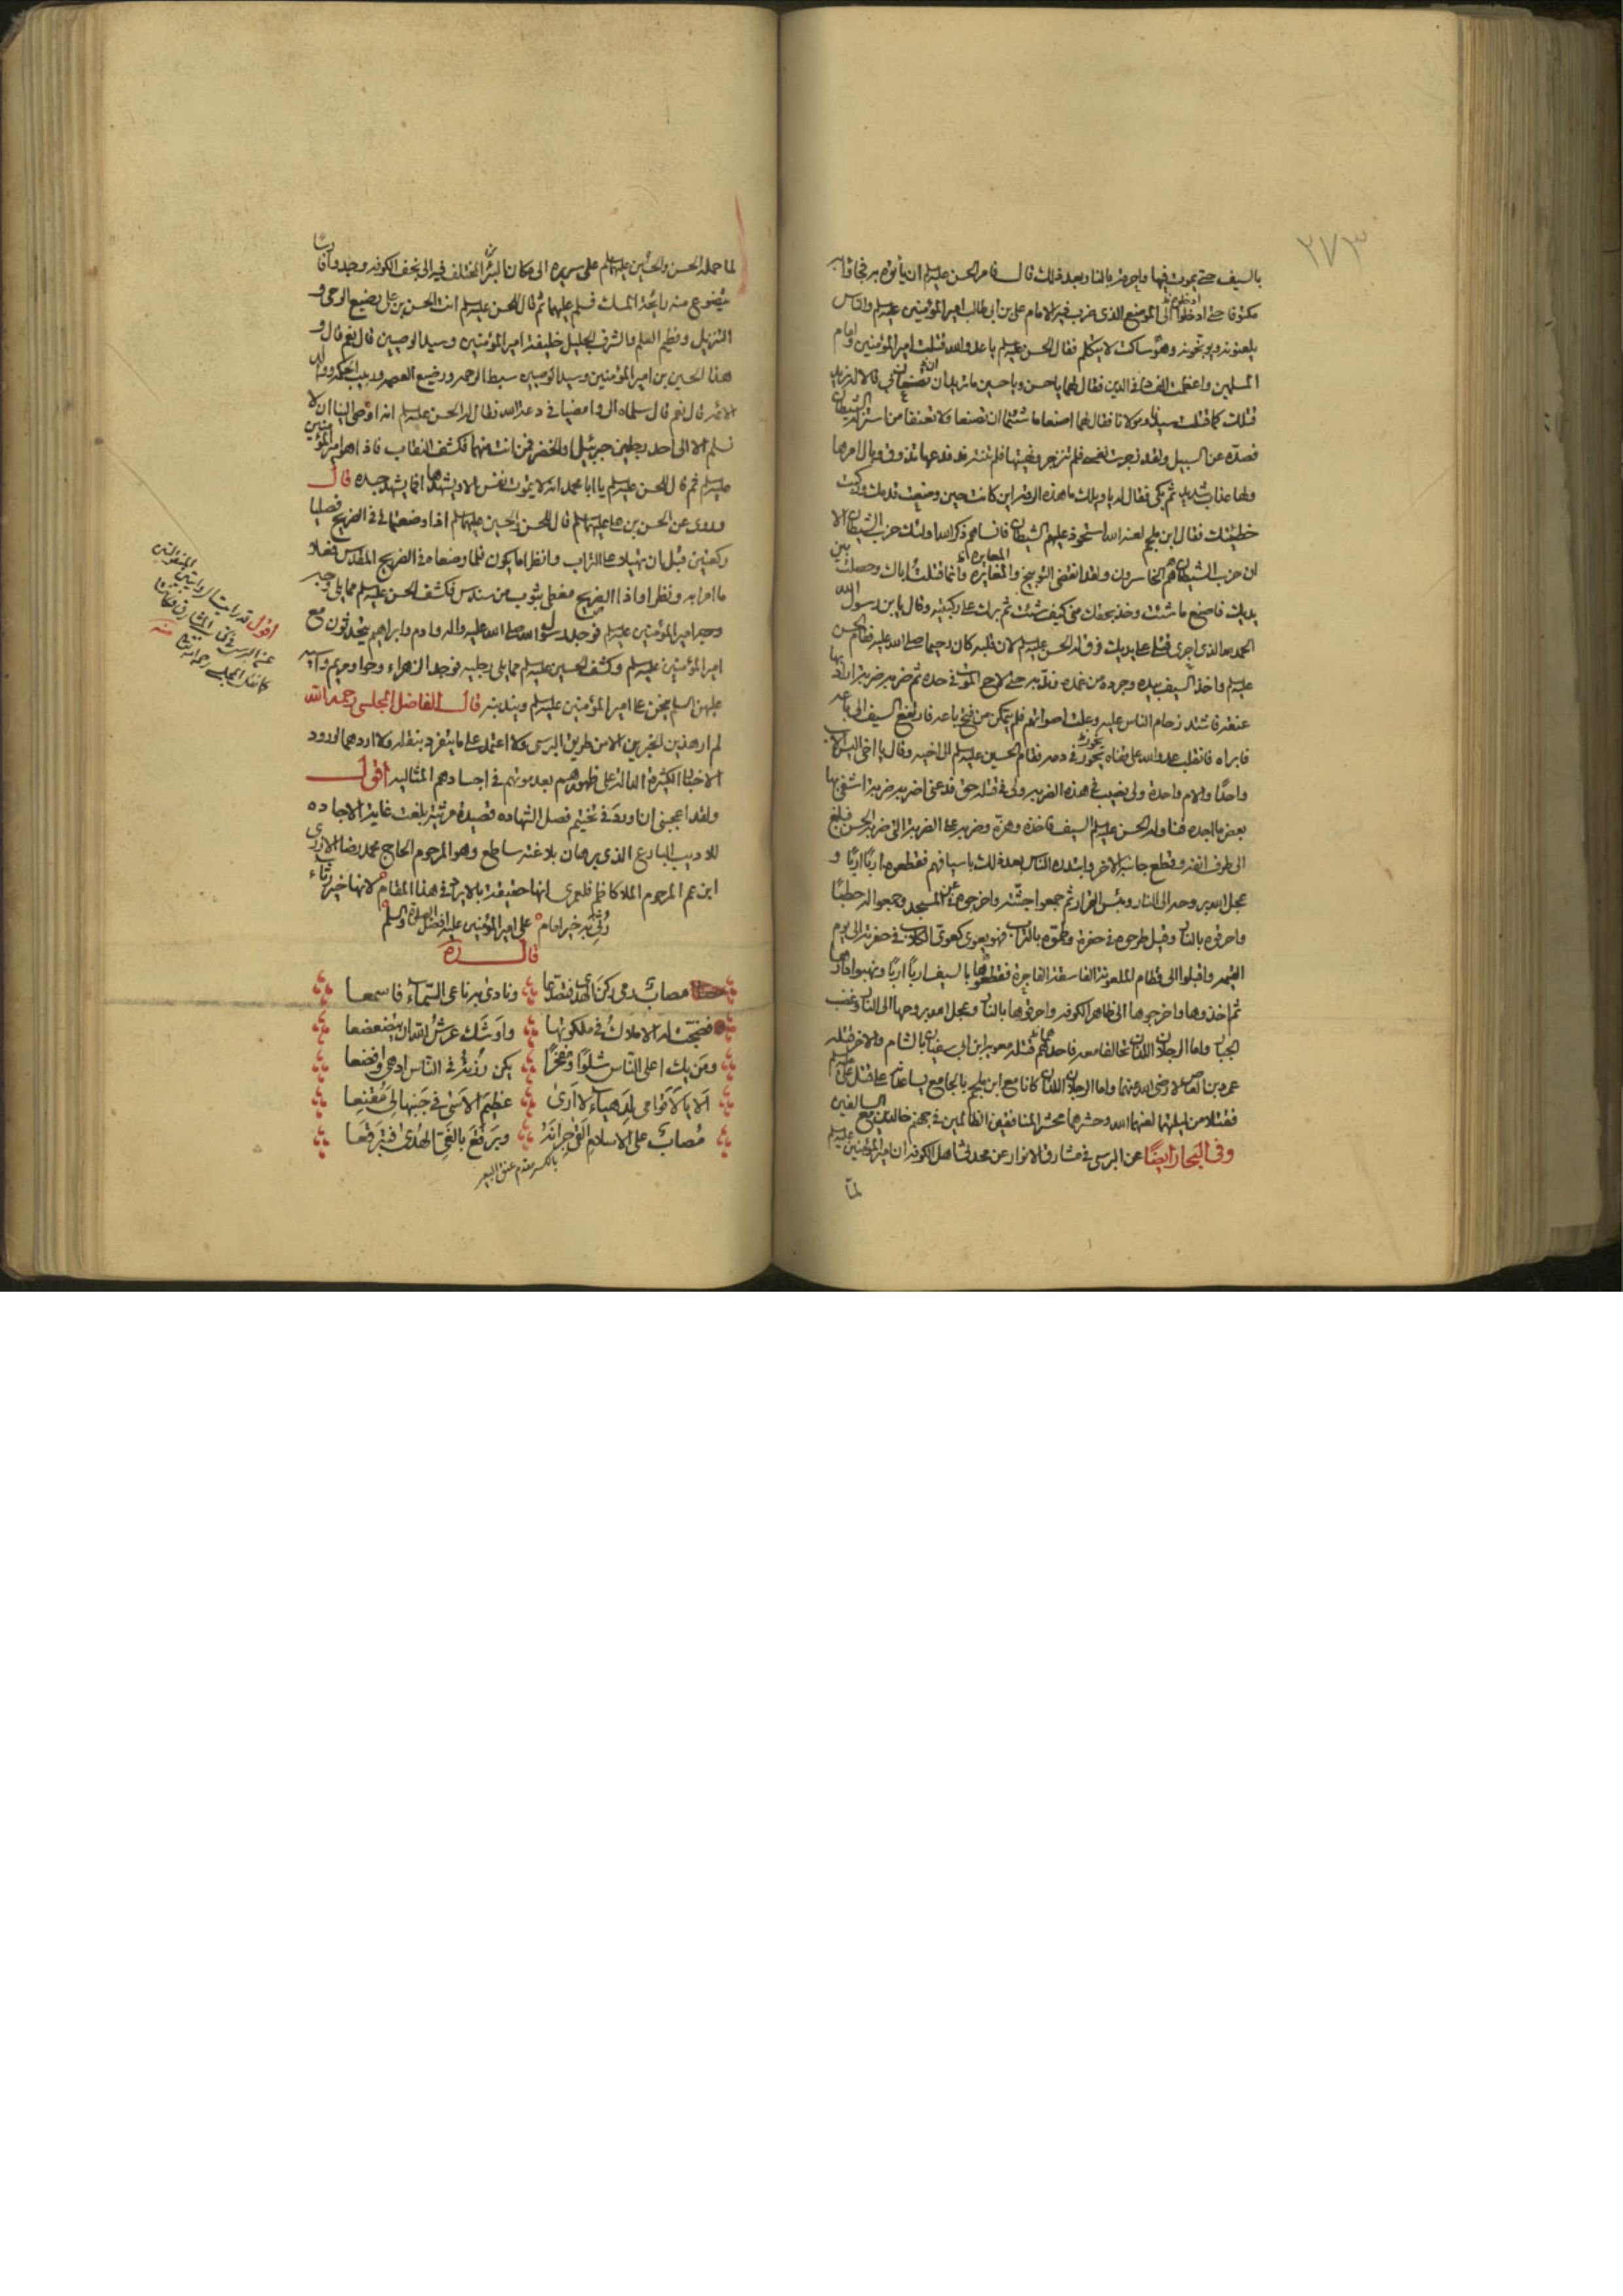 ٢٧٣
بالسيف حتى يموت فيها ويحرق بالنار بعد ذلك قال فامر الحسن عليه السلم ان يأتوه به فجاؤا به
مكتوفا حتى ادخلوه الى الموضع الذى ضرب فيه الامام على بن ابى طالب امير المؤمنين عليه السلم والناس
يلعنونه ويوبخونه وهو ساكت لا يتكلم فقال الحسن عليه السلم يا عدو الله قتلت امير المؤمنين وامام
المسلمين واعظمت الفساد فى الدين فقال لهما يا حسن ويا حسين ما تريدان تصنعان بى قالا له نريد
قتلك كما قتلت سيدنا ومولانا فقال لهما اصنعا ما شئتما ان تصنعا ولا تعنفا من استزله الشيطان
فصده عن السبيل ولقد زجرت نفسى فلم تنزجر ونهيتها فلم تنته فدعها تذوق وبال امرها
ولها عذاب شديد ثم بكى فقال له يا ويلك ما هذه الرقة اين كانت حين وضعت قدمك وركبت
خطيئتك فقال ابن ملجم لعنه الله استحوذ عليهم الشيطان فانساهم ذكر الله اولئك حزب الشيطان الا
ان حزب الشيطان هم الخاسرون ولقد انقضى التوبيخ والمعايرة وانما قتلت اباك وحصلت بين
يديك فاصنع ما شئت وخذ بحقك منى كيف شئت ثم برك على ركبتيه وقال يا بن رسول الله
الحمد لله الذى اجرى قتلى على يديك فرق له الحسن عليه السلم لان قلبه كان رحيما صلى الله عليه فقام الحسن
عليه السلم واخذ السيف بيده وجرده من غمده وندبه حتى لاح الموت فى حده ثم ضربه ضربة اراد بها
عنقه فاشتد زحام الناس عليه وعلت اصواتهم فلم يتمكن من فتح باعه فارتفع السيف الى باعه
فابراه فانقلب عدو الله على قفاه يخور فى دمه فقام الحسين عليه السلم الى اخيه وقال يا اخى اليس الاب
واحدا والام واحدة ولى نصيب فى هذه الضربة ولى فى قتله حق فدعنى اضربه ضربة اشفى بها
بعض ما اجده فناوله الحسن عليه السلم السيف فاخذه وهزه وضربه على الضربة التى ضربه الحسن فبلغ
الى طرف انفه وقطع جانبه الاخر وابتدره الناس بعد ذلك باسيافهم فقطعوه اربا اربا و
عجل الله بروحه الى النار وبئس القرار ثم جمعوا جثته واخرجوه من المسجد وجمعوا له حطبا
واحرقوه بالنار وقيل طرحوه فى حفرة وطموه بالتراب فهو يعوى كعوى الكلاب فى حفرته الى يوم
القيمة واقبلوا الى قطام الملعونة الفاسقة الفاجرة فقطعوها بالسيف اربا اربا ونهبوا دارها
ثم اخذوها واخرجوها الى ظاهر الكوفة واحرقوها بالنار وعجل الله بروحها الى النار وغضب
الجبار واما الرجلان اللذان تحالفا معه فاحدهما قتله معوية ابن ابى سفيان بالشام والاخر قتله
عمرو بن العاص لا رضى الله عنهما واما الرجلان اللذان كانا مع ابن ملجم بالجامع يساعدانه على قتل على عليه السلم
فقتلا من ليلتهما لعنهما الله وحشرهما محشر المنافقين الظالمين فى جهنم خالدين مع السالفين
وفى البحار ايضا عن البرسى فى مشارق الانوار عن محدثى اهل الكوفة ان امير المؤمنين عليه السلم
لما
لما حمله الحسن والحسين عليهما السلم على سريره الى مكان البئر المختلف فيه الى نجف الكوفة وجدوا فارسا
يتضوع منه رائحة المسك فسلم عليهما ثم قال للحسن عليه السلم انت الحسن بن على رضيع الوحى و
التنزيل وفطيم العلم والشرف الجليل خليفة امير المؤمنين وسيد الوصيين قال نعم قال و
هذا الحسين بن امير المؤمنين وسيد الوصيين سبط الرحمة ورضيع العصمة وربيب الحكمة ووالد
الائمة قال نعم قال سلماه الى وامضيا فى دعة الله فقال له الحسن عليه السلم انه اوصى الينا ان لا
نسلم الا الى احد رجلين جبرئيل او الخضر فمن انت منهما فكشف النقاب فاذا هو امير المؤمنين
عليه السلم ثم قال للحسن عليه السلم يا ابا محمد انه لا يموت نفس الا ويشهدها افما يشهد جسده قال
وروى عن الحسن بن على عليهما السلم قال للحسن والحسين عليهما السلم اذا وضعتمانى فى الضريح فصليا
ركعتين قبل ان تهيلا على التراب وانظرا ما يكون فلما وضعاه فى الضريح المقدس فعلا
ما امرا به ونظرا واذا الضريح مغطى بثوب من سندس فكشف الحسن عليه السلم مما يلى وجه
امير المؤمنين عليه السلم فوجد رسول الله صلى الله عليه واله وادم وابراهيم يتحدثون مع
امير المؤمنين عليه السلم وكشف الحسين عليه السلم مما يلى رجليه فوجد الزهراء وحوا ومريم واسية
عليهن السلم ينحن على امير المؤمنين عليه السلم ويندبنه قال الفاضل المجلسى رحمه الله
لم ار هذين الخبرين الا من طريق البرسى ولا اعتمد على ما يتفرد بنقله ولا اردهما لورود
الاخبار الكثيرة الدالة على ظهورهم بعد موتهم فى اجسادهم المثالية اقول
ولقد اعجبنى ان اورد فى تختيم فصل الشهادة قصيدة مرثية بلغت غاية الاجاده
للاديب البارع الذى برهان بلاغته ساطع وهو المرحوم الحاج محمد رضا الازرى
ابن عم المرحوم الملا كاظم فلعمرى انها حقيقة بالايراد فى هذا المقام لانها خير رثاء
رثى به خير امام على امير المؤمنين عليه افضل الصلوة والسلم
قال ره
مصاب رمى ركن الهدى فتصدعا ونادى به ناعى السماء فاسمعا
فضجت له الاملاك فى ملكوتها واوشك عرش الله ان يتضعضعا
ومن يك اعلى الناس شلوا ومفخرا يكن رزئه فى الناس ادهى وافضعا
الا يا لاقوامى لدهياء لا ارى عظيم الاسى فى جنبها لى مقنعا
مصاب على الاسلام القى جرانه وبرقع بالغى الهدى فتبرقعا
بالكسر مقدم عنق البعير
اقول قد رايت الروايتين المنقولتين
عن البرسى فى المشارق فكانتا
كما نقل المجلسى رحمه الله تعالى منه